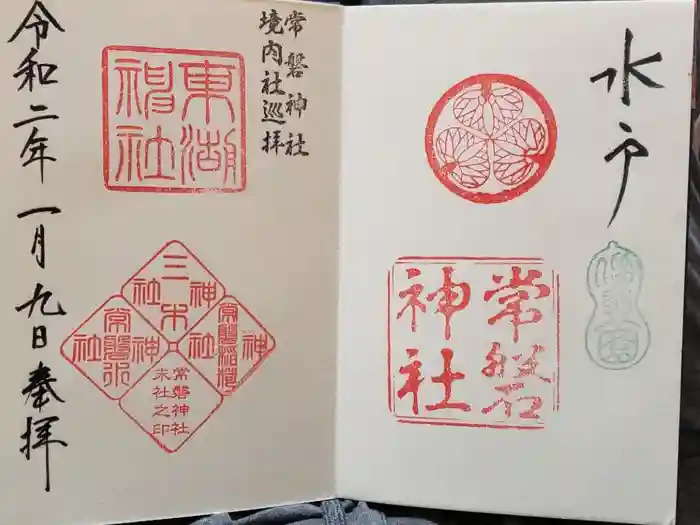 水戸
常磐
神社
常磐神社
境内社巡拝
東湖
神社
三木
神社
常磐稲荷
神社
常磐水
神社
常磐神社
末社之印
令和二年一月九日奉拝